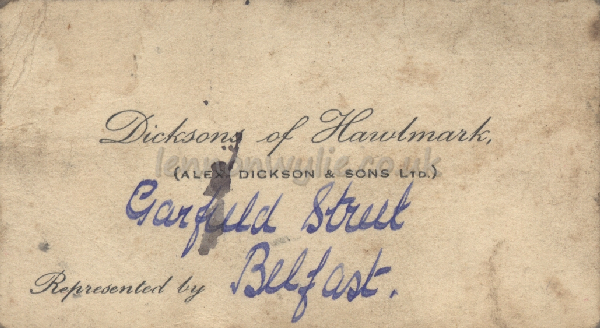 Dicksons of Hawlmark,
lennonwylie.co.uk
(ALEX. DICKSON & SONS LTD.)
Garfield Street
Belfast.
Represented by